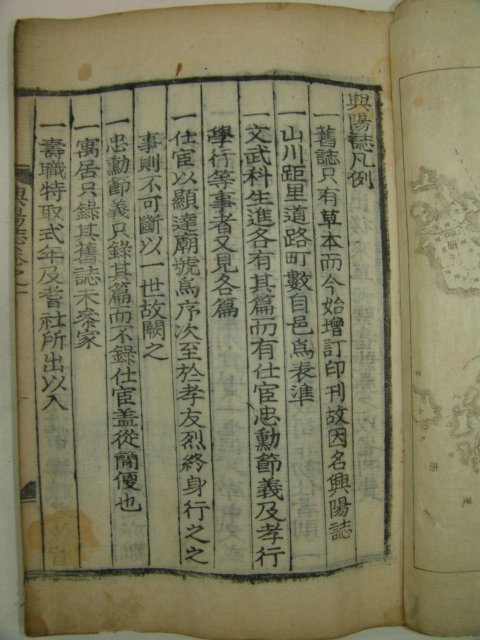 興陽誌凡例
一舊誌只有草本而今始增訂印刊故因名興陽誌
一山川距里道路町數自邑爲表準
一文武科生進各有其篇而有仕宦忠勳節義及孝行
學行等事者又見各篇
一仕宦以顯達廟號爲序次至於孝友烈終身行之之
事則不可斷以一世故闕之
一忠勳節義只錄其篇而不錄仕宦盖從簡便也
一寓居只錄其舊誌未參家
一壽職特取式年及耆社所出以入
興陽誌卷之一